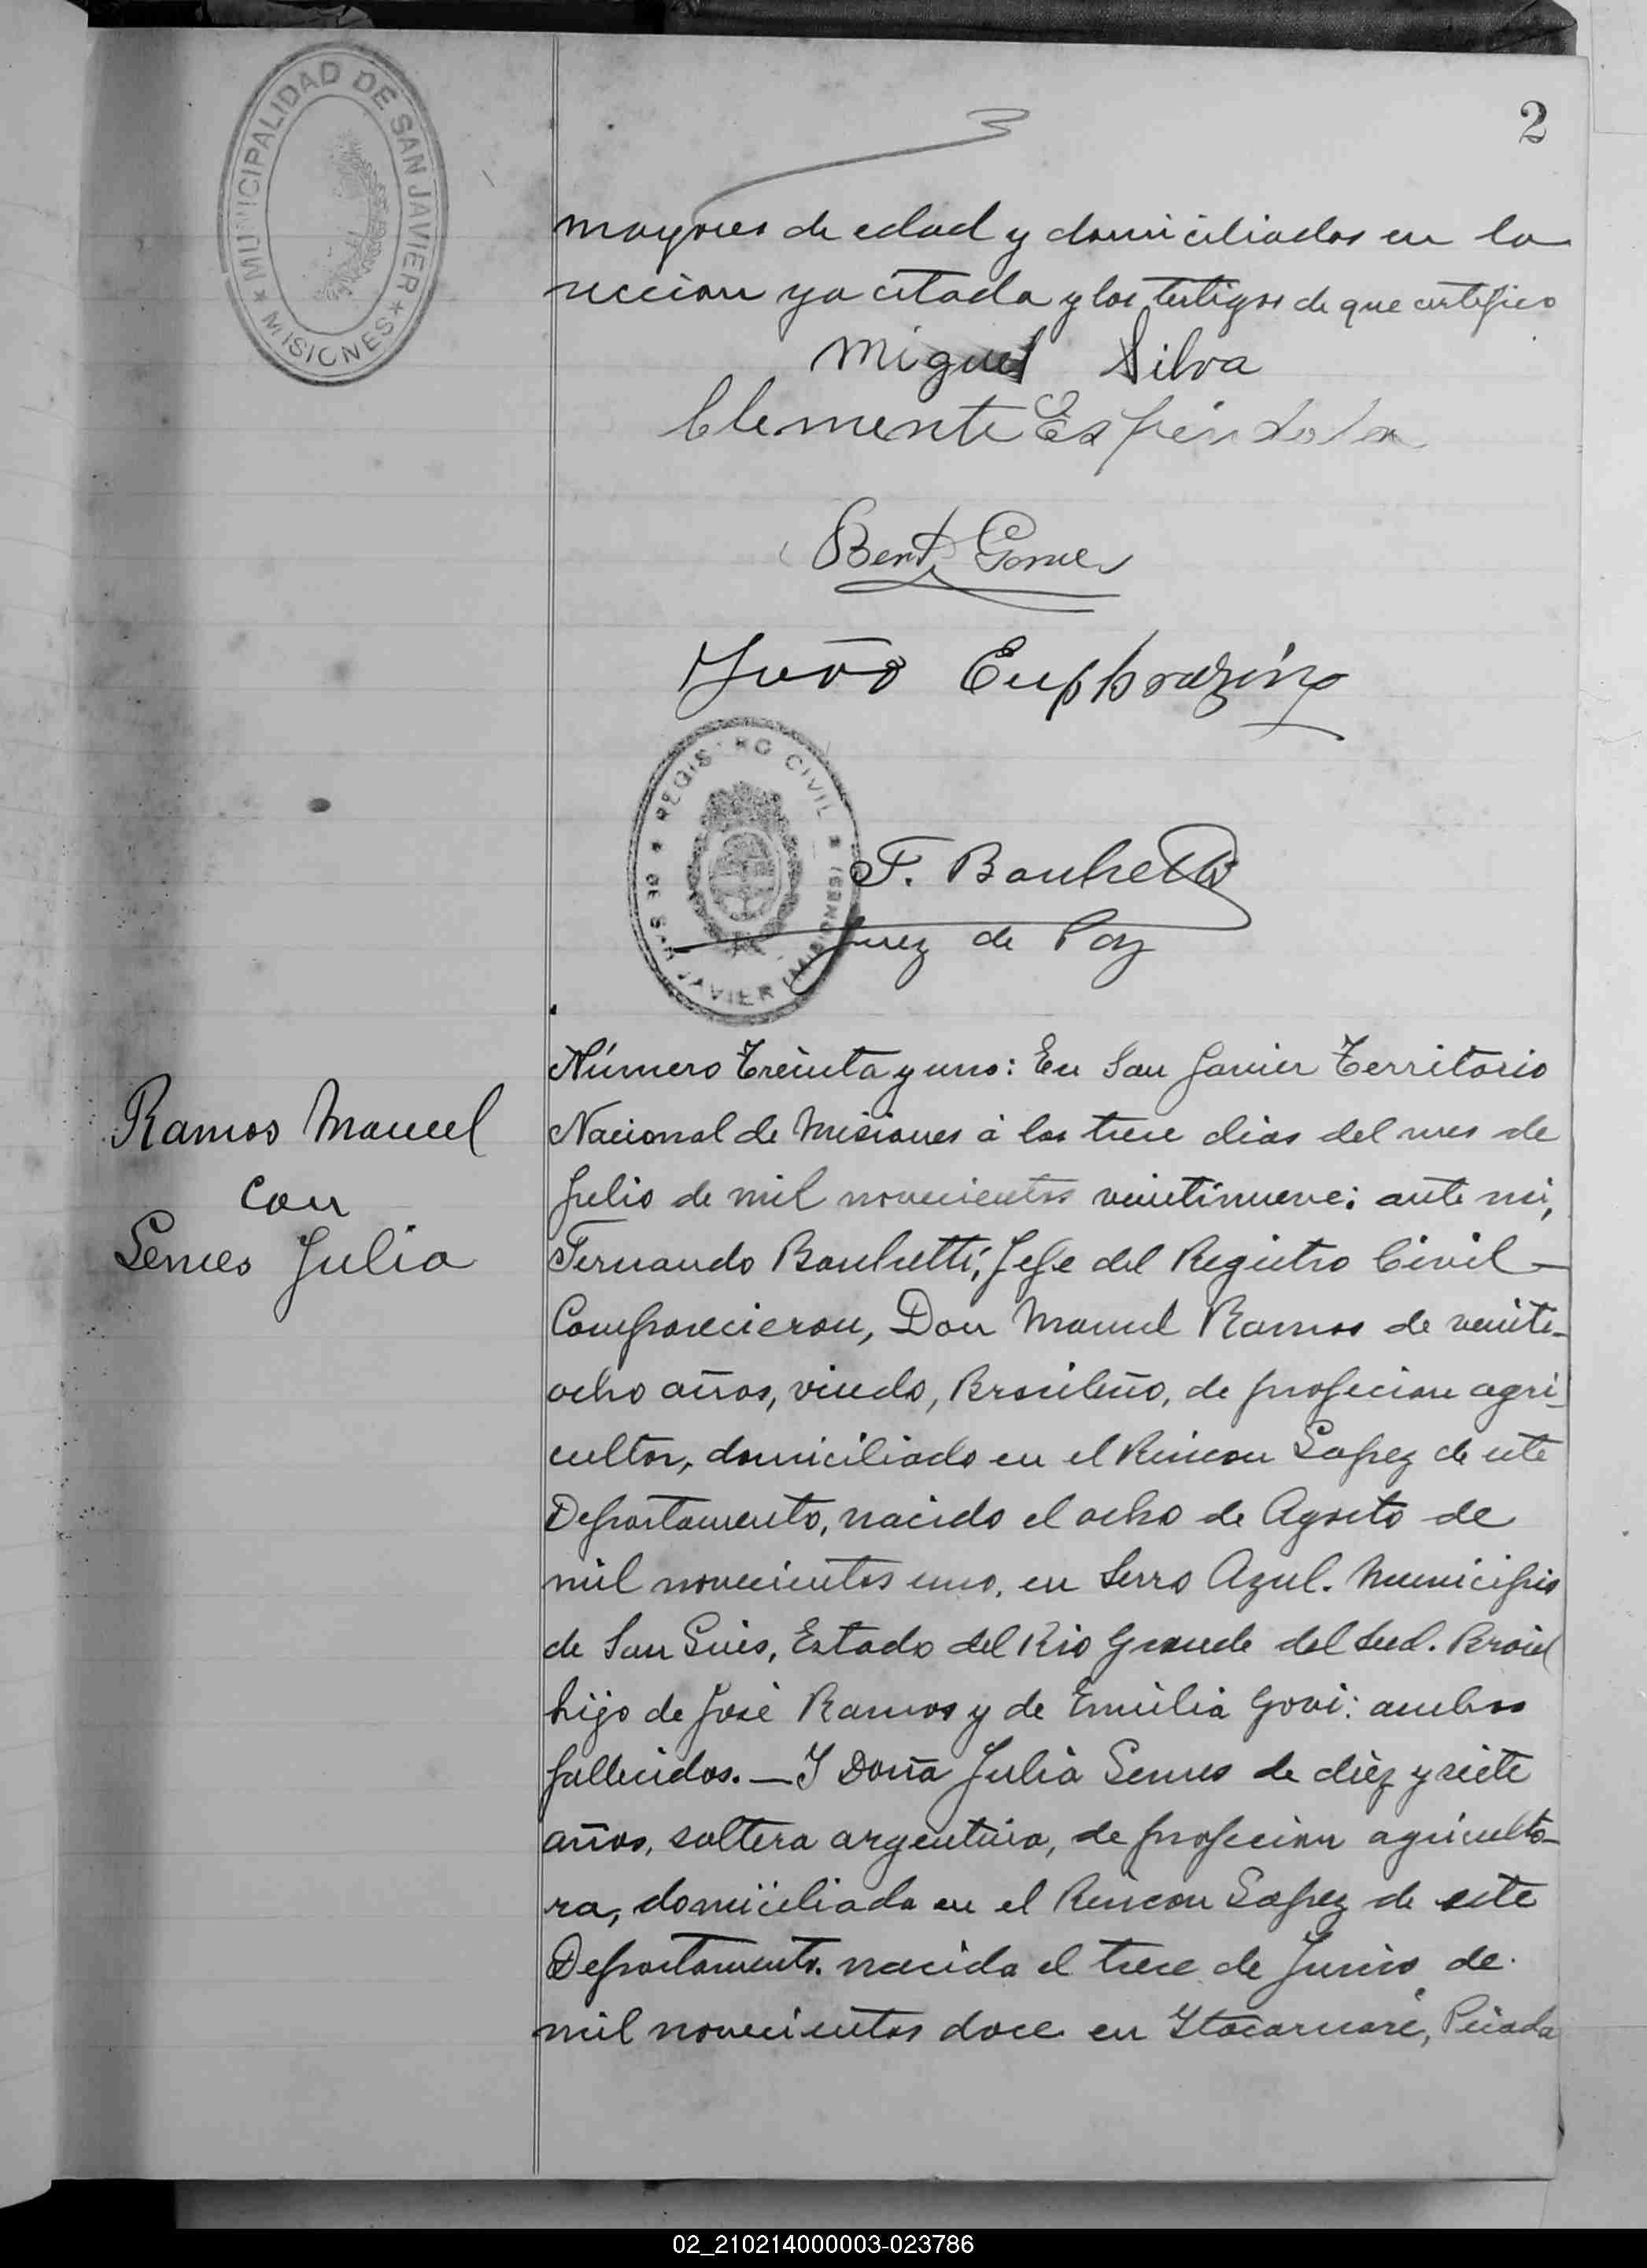 MUNICIPALIDAD DE SAN JAVIER
* MISIONES *
2
mayores de edad y domiciliados en la
seccion ya citada y los testigos de que certifico
Miguel Silva
Clemente Espindola
Bent Gomes
João Euphrazino
REGISTRO CIVIL
DE SAN JAVIER (MISIONES)
F. Banhetti
Juez de Paz
Ramos Manuel
con
Lemes Julia
Número Treinta y uno: En San Javier Territorio
Nacional de Misiones á los trece dias del mes de
Julio de mil novecientos veintinueve: ante mi,
Fernando Banhetti, Jefe del Registro Civil
Comparecieron, Don Manuel Ramos de veinti-
ocho años, viudo, Brasileño, de profecion agri-
cultor, domiciliado en el Rincon Lopez de este
Departamento, nacido el ocho de Agosto de
mil novecientos uno, en Serro Azul. Municipio
de San Luis, Estado del Rio Grande del Sud. Brasil
hijo de José Ramos y de Emilia Govi: ambos
fallecidos. — Y Doña Julia Lemes de diez y siete
años, soltera argentina, de profecion agriculto-
ra, domiciliada en el Rincon Lopez de este
Departamento. nacida el trece de Junio de
mil novecientos doce en Itacaruaré, Picada
02_210214000003-023786